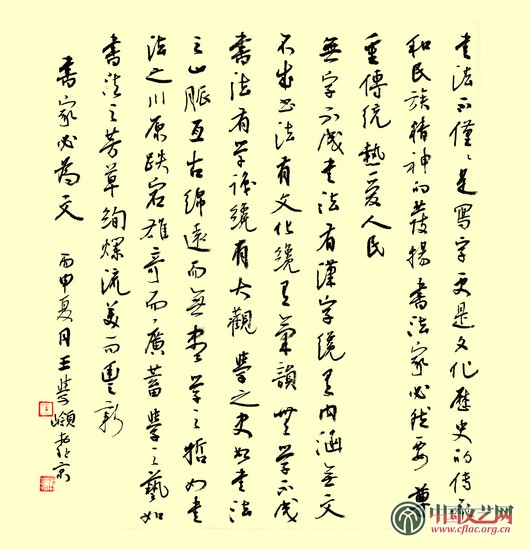 书法不僅僅是寫字更是文化歷史的傳承
和民族精神的發揚書法家必然要尊
重傳統熱愛人民
無字不成书法有漢字纔有内涵無文
不成书法有文化纔有氣韻無學不成
書法有學識纔有大觀學之史如书法
之山脈亙古綿遠而無盡學之哲如书
法之川原跌宕雄奇而廣蓄學之藝如
書法之芳草絢爛流美而豐新
書家必為文 丙申夏月王學嶺於北京
中国文艺网
www.cflac.org.cn